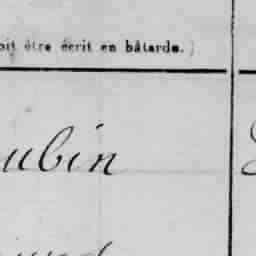 oit être écrit en bâtarde.)
ubin